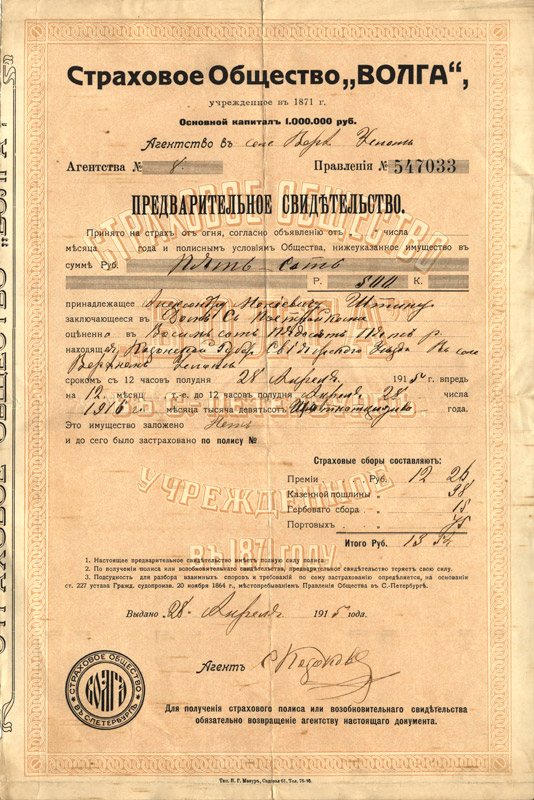 Страховое Общество „ВОЛГА“,
учрежденное въ 1871 г.
Основной капиталъ 1.000.000 руб.
Агентство въ селе Верх.
Агентства № 8. Правленiя № 547033
ПРЕДВАРИТЕЛЬНОЕ СВИДѢТЕЛЬСТВО.
Принято на страхъ отъ огня, согласно объявленiю отъ числа
мѣсяца года и полиснымъ условiямъ Общества, нижеуказанное имущество въ
суммѣ Руб. Пять сотъ
Р. 500 К.
принадлежащее Александру
заключающееся въ Домѣ Съ Постройками
оцѣненно въ Восемьсотъ Пядесять Пять р
находящ Губер. Уезда Въ селе
Верхнемъ
срокомъ съ 12 часовъ полудня 28 Апреля 1915 г впредь
на 12 мѣсяц т.-е. до 12 часовъ полудня Апреля 28 числа
1916 мѣсяца тысяча девятьсотъ года.
Это имущество заложено Нетъ
и до сего было застраховано по полису №
Страховые сборы составляютъ:
Премiи Руб. 12 26
Казенной пошлины 38
Гербоваго сбора 15
Портовыхъ 75
Итого Руб. 13 54
1. Настоящее предварительное свидѣтельство имѣетъ полную силу полиса.
2. По полученiи полиса или возобновительнаго свидѣтельства, предварительное свидѣтельство теряетъ свою силу.
3. Подсудность для разбора взаимныхъ споровъ и требованiй по сему застрахованiю опредѣляется, на основанiи
ст. 227 устава Гражд. судопроизв. 20 ноября 1864 г., мѣстопребыванiемъ Правленiя Общества въ С.-Петербургѣ.
Выдано 28 Апреля 1915 года.
Агентъ
СТРАХОВОЕ ОБЩЕСТВО
ВОЛГА
ВЪ С.ПЕТЕРБУРГѢ
Для полученiя страхового полиса или возобновительнаго свидѣтельства
обязательно возвращенiе агентству настоящаго документа.
СТРАХОВОЕ ОБЩЕСТВО
„ВОЛГА“
УЧРЕЖДЕННОЕ
ВЪ 1871 ГОДУ
СТРАХОВОЕ ОБЩЕСТВО „ВОЛГА“